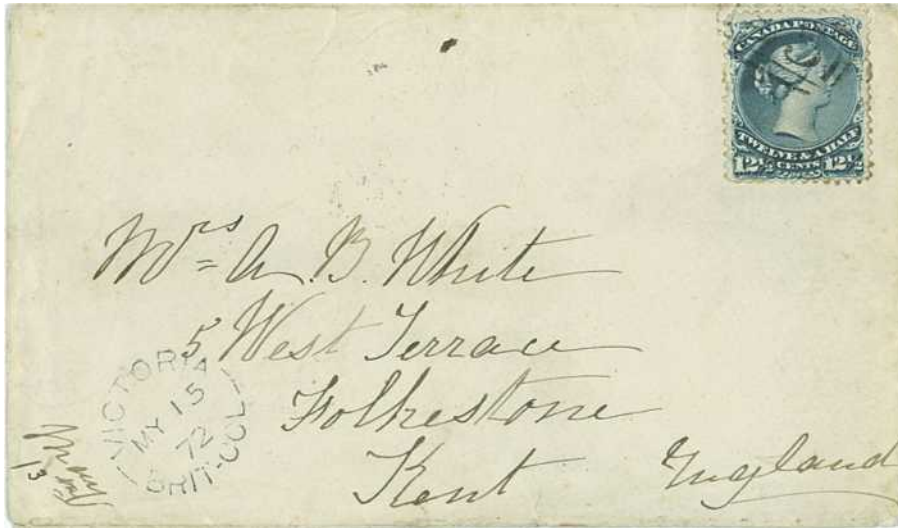 CANADA POSTAGE
TWELVE & A HALF
12½ CENTS 12½
Mrs A. B. White
5 West Terrace
Folkestone
Kent England
VICTORIA
MY 15
72
BRIT-COL
May
13